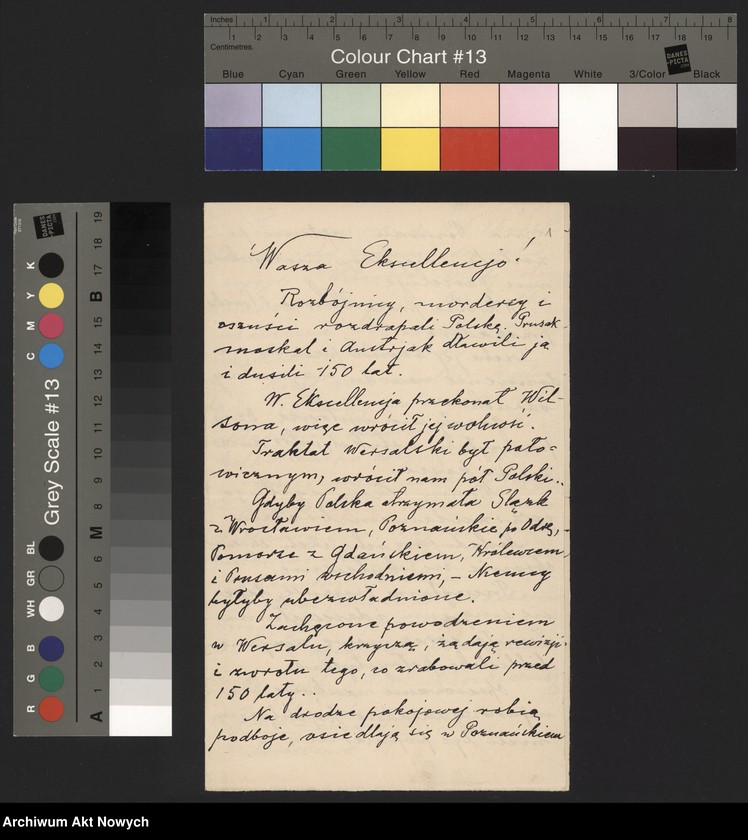 Inches 1 2 3 4 5 6 7 8
Centimetres 1 2 3 4 5 6 7 8 9 10 11 12 13 14 15 16 17 18 19
Colour Chart #13
DANES
-PICTA
.COM
Blue Cyan Green Yellow Red Magenta White 3/Color Black
Grey Scale #13
DANES
-PICTA
.COM
R G B WH GR BL C M Y K
A 1 2 3 4 5 6 M 8 9 10 11 12 13 14 15 B 17 18 19
1
Wasza Ekscellencjo!
Rozbójnicy, mordercy i
oszuści rozdrapali Polskę. Prusak
moskal i Austrjak dławili ją
i dusili 150 lat.
W. Ekscellencja przekonał Wil-
sona, więc wrócił jej wolność.
Traktat Wersalski był poło-
wicznym, wrócił nam pół Polski..
Gdyby Polska otrzymała Śląsk
z Wrocławiem, Poznańskie po Odrę,
Pomorze z Gdańskiem, Królewcem,
i Prusami wschodniemi, – Niemcy
byłyby ubezwładnione.
Zachęcone powodzeniem
w Wersalu, krzyczą, i żądają rewizji
i zwrotu tego, co zrabowali przed
150 laty..
Na drodze pokojowej robią
podboje, osiedlają się w Poznańskiem
Archiwum Akt Nowych